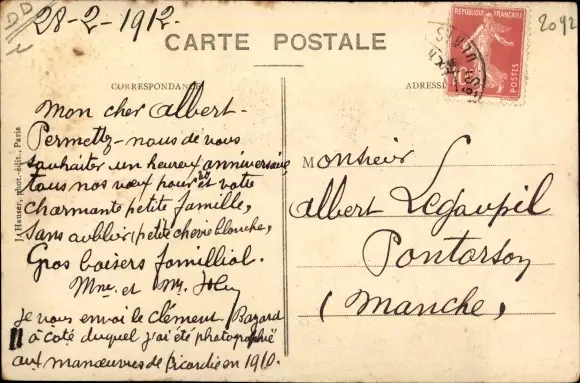 DD
28-2-1912.
2092
CARTE POSTALE
RÉPUBLIQUE FRANÇAISE
POSTES
CORRESPONDANCE
ADRESSE
J. Hauser, phot.-édit., Paris
Mon cher Albert-
Permettez-nous de vous
souhaiter un heureux anniversaire
tous nos vœux pour et votre
charmante petite famille,
sans oublier petite chevie blanche,
Gros baisers familliol.
Mme et
Je vous envoi le clément Bayard
à coté duquel j'ai été photographié
aux manœuvres de picardie en 1910.
Monsieur
Albert Legoupil
Pontorson
(Manche)